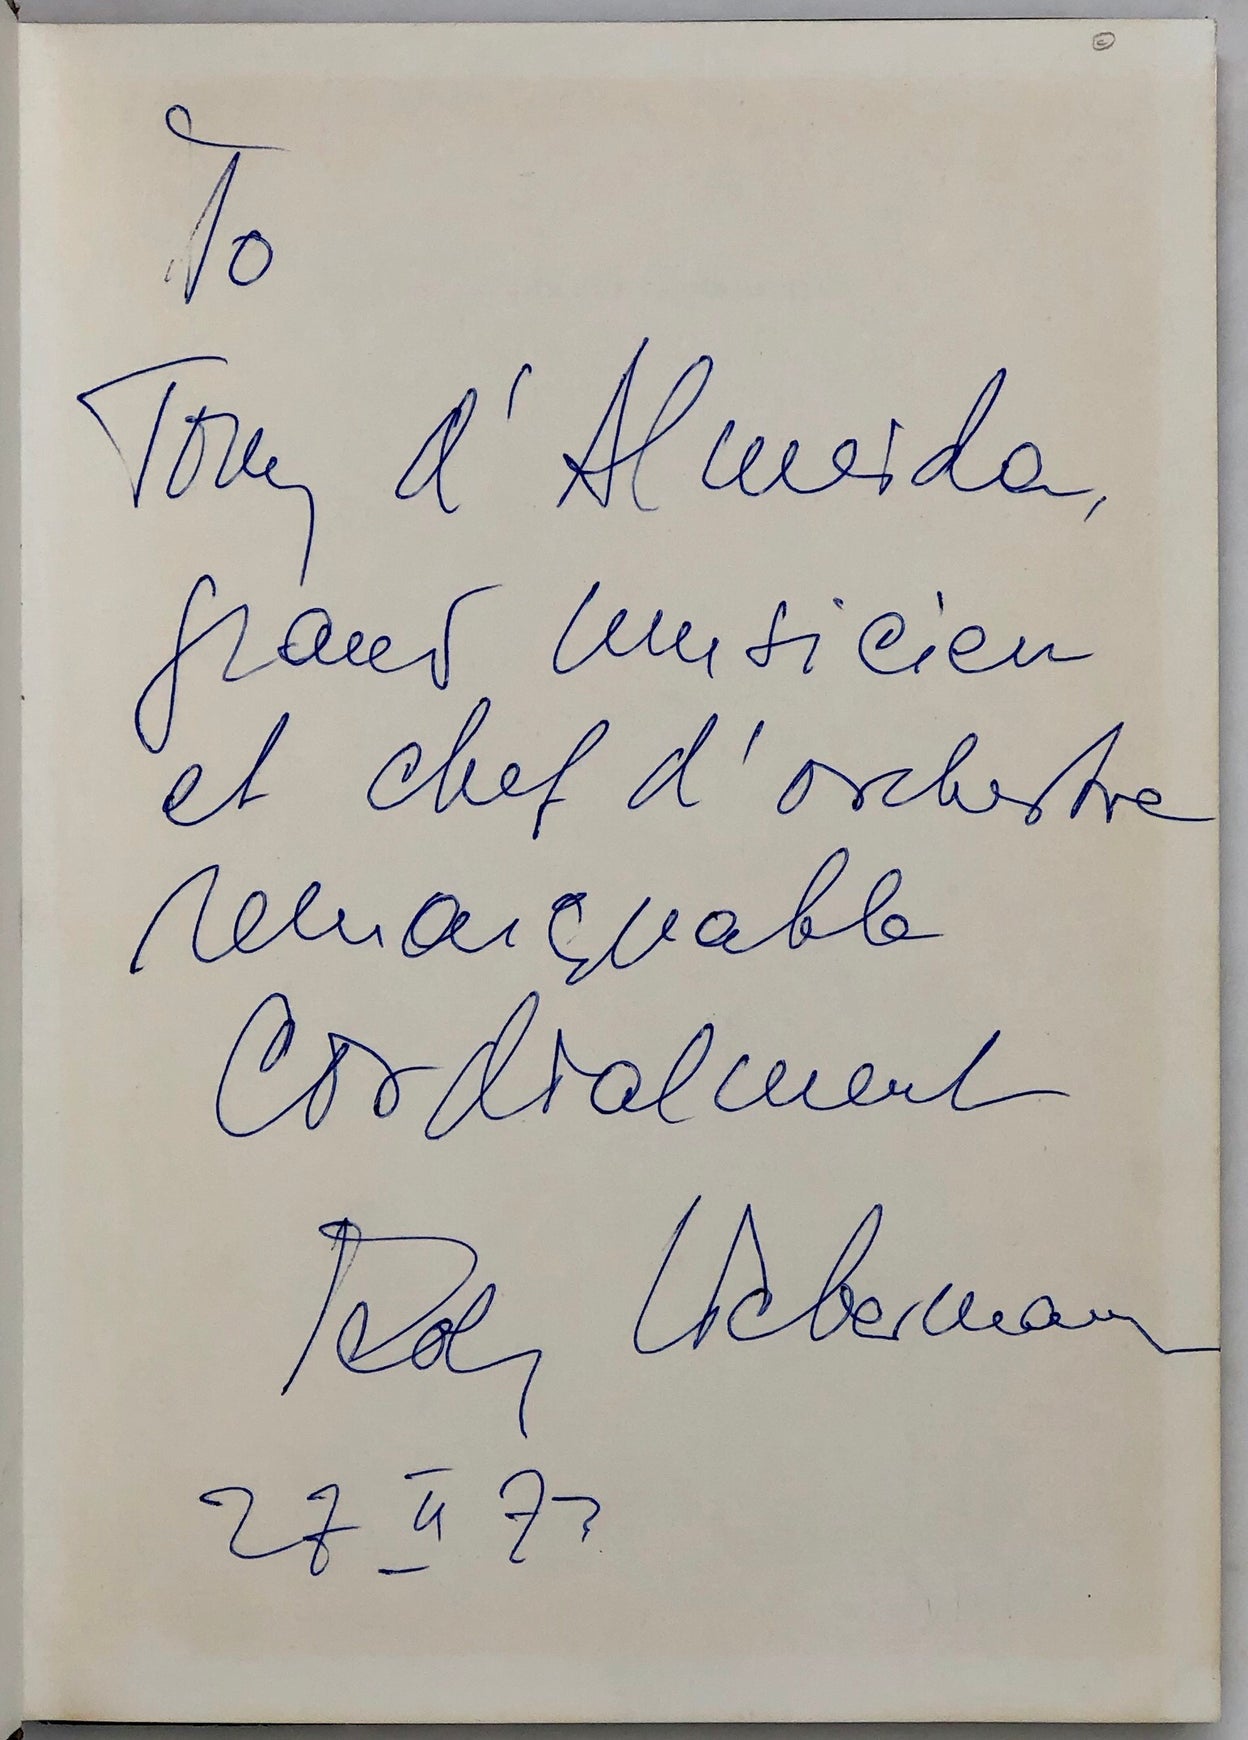 To
Tony d'Almeida,
grand musicien
et chef d'orchestre
remarquable
Cordialment
Rolf Liebermann
27 II 77